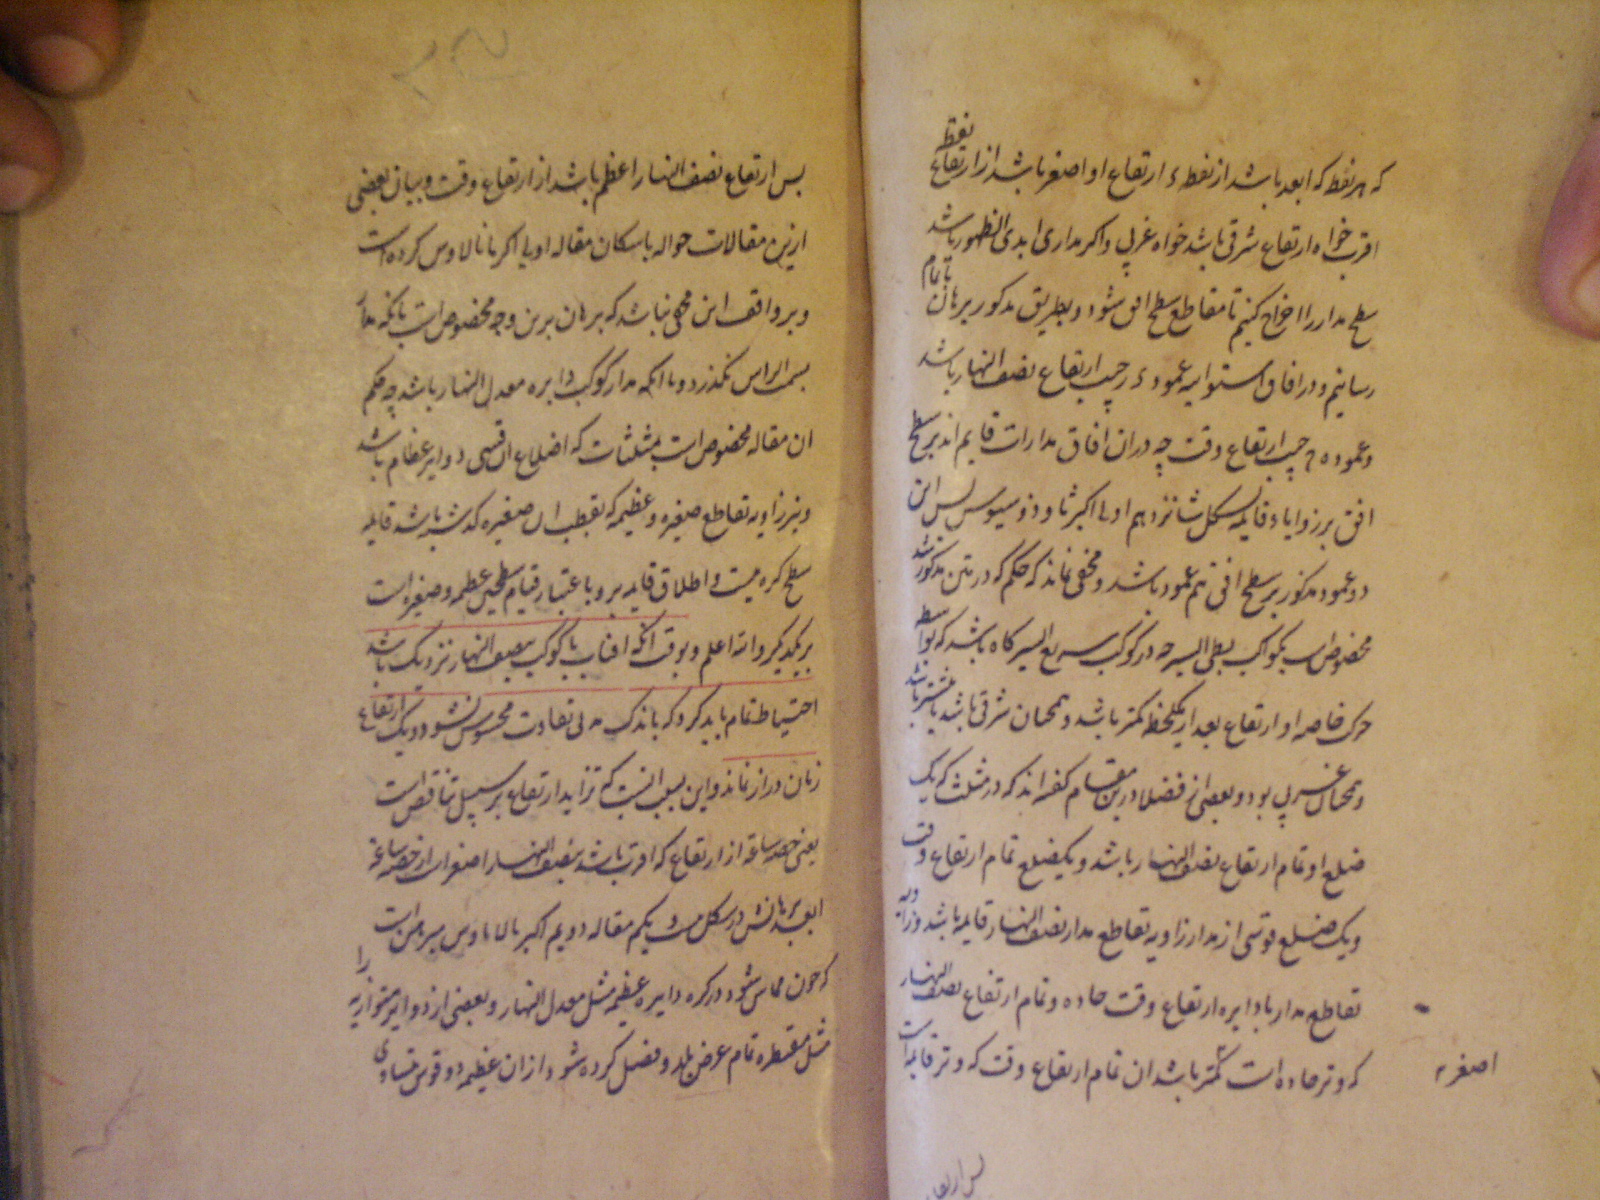 که هر نقطه که ابعد باشد از نقطهٔ ارتفاع او اصغر باشد از ارتفاع نقطه
اقرب خواه ارتفاع شرقی باشد خواه غربی و اکر مداری ابدی الظهور باشد
سطح مدار را اخراج کنیم تا مقاطع سطح افق شود و بطریق مذکور برهان با تمام
رسانیم و در افاق استوائیه عمود جیب ارتفاع نصف النهار باشد
و عمود جیب ارتفاع وقت چه دران افاق مدارات قایم اند بر سطح
افق بر زوایاء قایمه بشکل شانزدهم اولی اکر ثاوذوسیوس پس این
دو عمود مذکور بر سطح افق هم عمود باشد و مخفی نماند که حکم که در متن مذکور شد
مخصوص است بکواکب بطی السیر چه در کوکب سریع السیر کاه باشد که بواسطه
حرکت خاصه او ارتفاع بعد از یکلحظه کمتر باشد و همچنان شرقی باشد یا بیشتر باشد
و همچنان غربی بود و بعضی از فضلا درین مقام کفته اند که در مثلث که یک
ضلع او تمام ارتفاع نصف النهار باشد و یکضلع تمام ارتفاع وقت
و یک ضلع قوسی از مدار زاویه تقاطع مدار نصف النهار قایمه باشد و زاویه
تقاطع مدار با دایره ارتفاع وقت حاده و تمام ارتفاع نصف النهار
که وتر حاده است کمتر باشد ان تمام ارتفاع وقت که وتر قایمه است
اصغر
پس ارتفاع
پس ارتفاع نصف النهار اعظم باشد از ارتفاع وقت و بیان بعضی
ازین مقالات حواله باشکال مقاله اولی اکر مانالاوس کرده است
و بر واقف این مخفی نباشد که برهان برین وجه مخصوص است بانکه مدار
بسمت الراس نکذرد و با انکه مدار کوکب دایره معدل النهار باشد چه حکم
ان مقاله مخصوص است بمثلثات که اضلاع ان قسی دوایر عظام باشد
و نیز زاویه تقاطع صغیره و عظیمه که بقطب ان صغیره کذشته باشد قایمه
سطح کره نیست و اطلاق قایمه برو باعتبار قیام سطحین عظیمه و صغیره است
بر یکدیکر والله اعلم و بوقت انکه افتاب یا کوکب بنصف النهار نزدیک باشد
احتیاط تمام باید کرد که باندک مدتی تفاوت محسوس نشود و یک ارتفاع
زمان دراز نماند و این بسبب انست که تزاید ارتفاع بر سبیل تناقص است
یعنی حصه ساعة از ارتفاع که اقرب باشد بنصف النهار اصغر است از حصه ساعة
ابعد برهانش در شکل بیست و یکم مقاله دویم اکر مالاناوس مبرهن است
که چون مماس شود در کره دایره عظیمه مثل معدل النهار و بعضی از دوایر متوازیه را
مثل مقنطره تمام عرض بلد و فصل کرده شود ازان عظیمه دو قوس متساوی